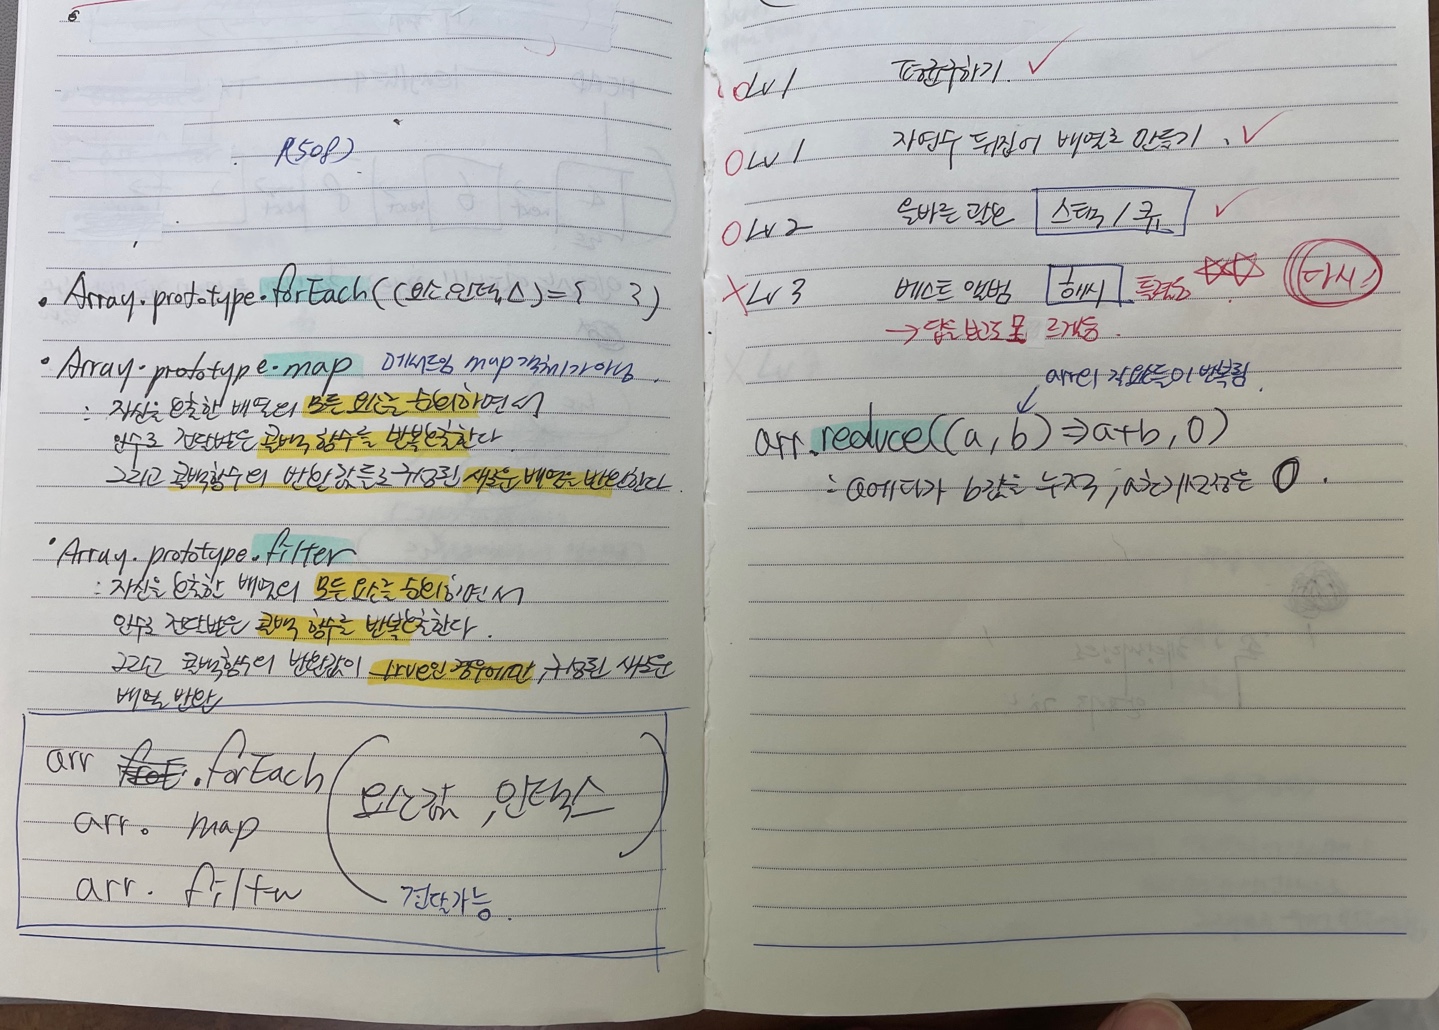 P.508)
• Array.prototype.forEach((요소,인덱스)={ })
• Array.prototype.map 메서드임 map객체가 아님.
: 자신을 호출한 배열의 모든 요소를 순회하면서
인수로 전달받은 콜백 함수를 반복호출한다.
그리고 콜백함수의 반환값들로 구성된 새로운 배열을 반환한다.
• Array.prototype.filter
: 자신을 호출한 배열의 모든 요소를 순회하면서
인수로 전달받은 콜백 함수를 반복호출한다.
그리고 콜백함수의 반환값이 true인 경우에만, 구성된 새로운
배열 반환
arr .forEach (요소값, 인덱스)
arr. map
arr. filter
전달가능.
O Lv 1 평균구하기. ✓
O Lv 1 자연수 뒤집어 배열로 만들기. ✓
O Lv 2 올바른 괄호 스택/큐 ✓
X Lv 3 베스트 앨범 해시 ☆☆ 다시!
→ 답을 봐도 모르겠음.
arr의 각요소들이 반복됨.
arr.reduce((a, b) => a+b, 0)
: a에다가 b값을 누적, a초기설정은 0.